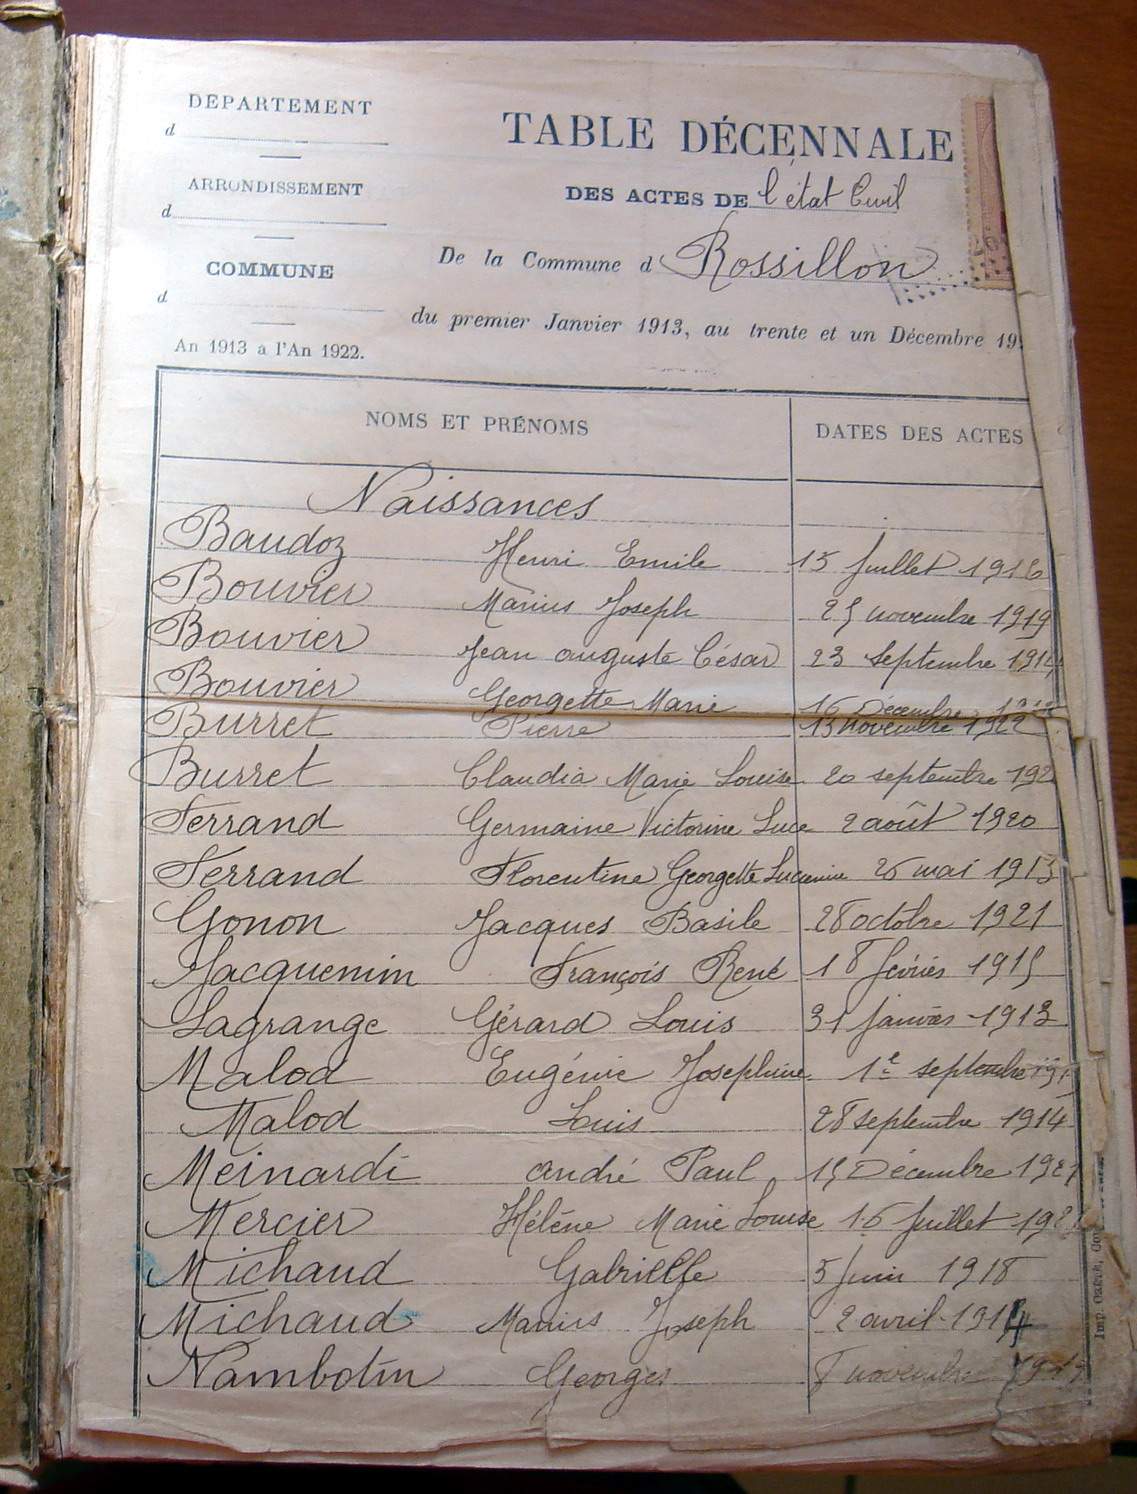 DEPARTEMENT
d
ARRONDISSEMENT
d
COMMUNE
d
An 1913 à l'An 1922.
TABLE DÉCENNALE
DES ACTES DE l'état Civil
De la Commune d Rossillon
du premier Janvier 1913, au trente et un Décembre 19
NOMS ET PRÉNOMS DATES DES ACTES
Naissances
Baudoz Henri Emile 15 Juillet 1916
Bouvier Marius Joseph 25 novembre 1919
Bouvier Jean auguste César 23 septembre 1914
Bouvier Georgette Marie 16 Décembre
Burret Pierre 13 novembre 1922
Burret Claudia Marie Louise 20 septembre 192
Ferrand Germaine Victorine Luce 2 août 1920
Ferrand Florentine Georgette Lucienne 26 mai 1913
Gonon Jacques Basile 28 octobre 1921
Jacquemin François René 18 février 1915
Lagrange Gérard Louis 31 janvier 1913
Malod Eugénie Josephine 1e septembre
Malod Louis 28 septembre 1914
Meinardi andré Paul 15 Décembre 1921
Mercier Hélène Marie Louise 16 Juillet 192
Michaud Gabrielle 5 Juin 1918
Michaud Marius Joseph 2 avril 1914
Nambotin Georges 8 novembre